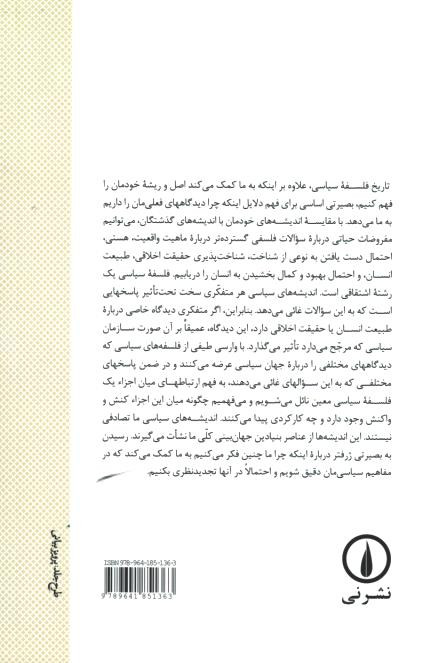 تاریخ فلسفهٔ سیاسی، علاوه بر اینکه به ما کمک می‌کند اصل و ریشهٔ خودمان را
فهم کنیم، بصیرتی اساسی برای فهم دلایل اینکه چرا دیدگاههای فعلی‌مان را داریم
به ما می‌دهد. با مقایسهٔ اندیشه‌های خودمان با اندیشه‌های گذشتگان، می‌توانیم
مفروضات حیاتی دربارهٔ سؤالات فلسفی گسترده‌تر دربارهٔ ماهیت واقعیت، هستی،
احتمال دست یافتن به نوعی از شناخت، شناخت‌پذیری حقیقت اخلاقی، طبیعت
انسان، و احتمال بهبود و کمال بخشیدن به انسان را دریابیم. فلسفهٔ سیاسی یک
رشتهٔ اشتقاقی است. اندیشه‌های سیاسی هر متفکّری سخت تحت‌تأثیر پاسخهایی
است که به این سؤالات غائی می‌دهد. بنابراین، اگر متفکری دیدگاه خاصی دربارهٔ
طبیعت انسان یا حقیقت اخلاقی دارد، این دیدگاه، عمیقاً بر آن صورت سازمان
سیاسی که مرجّح می‌دارد تأثیر می‌گذارد. با وارسی طیفی از فلسفه‌های سیاسی که
دیدگاههای مختلفی را دربارهٔ جهان سیاسی عرضه می‌کنند و در ضمن پاسخهای
مختلفـی که به این سؤالهای غائی می‌دهند، به فهم ارتباطهـای میان اجزاء یک
فلسـفهٔ سیاسی معین نائل می‌شـویم و می‌فهمیم چگونه میان این اجزاء کنش و
واکنش وجود دارد و چه کارکردی پیدا می‌کنند. اندیشـه‌های سیاسی ما تصادفی
نیستند. این اندیشه‌ها از عناصر بنیادین جهان‌بینی کلّی ما نشأت می‌گیرند. رسیدن
به بصیرتی ژرفتر دربارهٔ اینکه چرا ما چنین فکر می‌کنیم به ما کمک می‌کند که در
مفاهیم سیاسی‌مان دقیق شویم و احتمالاً در آنها تجدیدنظری بکنیم.
ISBN 978-964-185-136-3
9 789641 851363
نشر نی
طرح جلد: پرویز بیانی